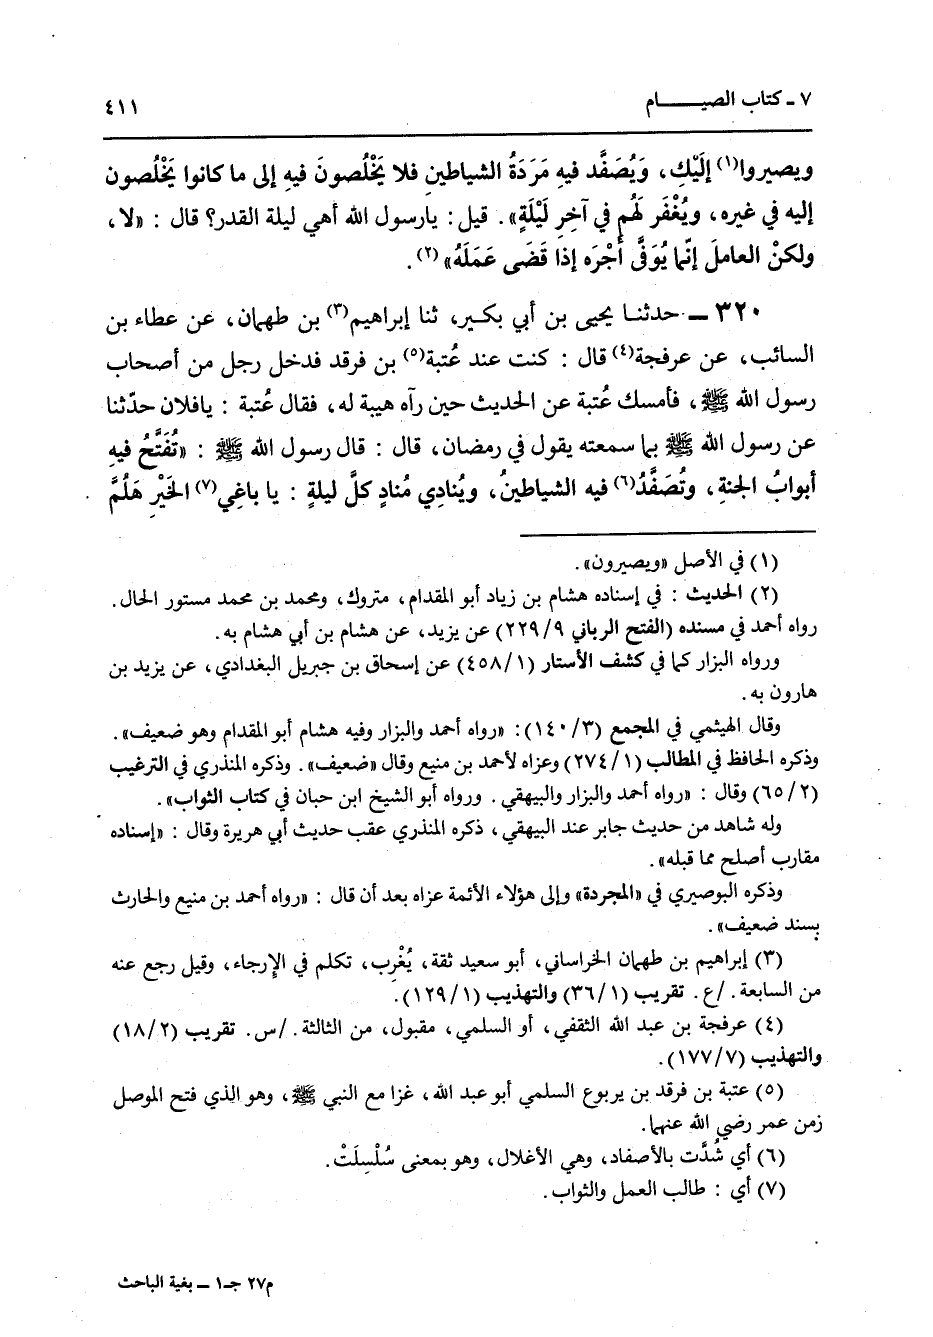 ٧ ـ كتاب الصيـــــام
٤١١
ويصيروا(١) إِلَيْكِ، وَيُصَفَّد فيه مَرَدَةُ الشياطين فلا يَخْلُصونَ فيهِ إلى ما كانوا يَخْلُصون
إليه في غيره، ويُغْفَر لَهُم في آخِرِ لَيْلَةٍ». قيل: يارسول الله أهي ليلة القدر؟ قال : «لا،
ولكنْ العاملَ إنّما يُوَفَّى أَجْرَه إذا قَضَى عَمَلَهُ»(٢).
٣٢٠ ـ حدثنا يحيى بن أبي بكير، ثنا إبراهيم(٣) بن طهمان، عن عطاء بن
السائب، عن عرفجة(٤) قال : كنت عند عُتبة(٥) بن فرقد فدخل رجل من أصحاب
رسول الله ﷺ، فأمسك عُتبة عن الحديث حين رآه هيبة له، فقال عُتبة : يافلان حدّثنا
عن رسول الله ﷺ بما سمعته يقول في رمضان، قال : قال رسول الله ﷺ : «تُفَتَّحُ فيهِ
أبوابُ الجنةِ، وتُصَفَّدُ(٦) فيه الشياطينُ، ويُنادِي مُنادٍ كلَّ ليلةٍ : يا باغِي(٧) الخَيْرِ هَلُمَّ
(١) في الأصل «ويصيرون».
(٢) الحديث : في إسناده هشام بن زياد أبو المقدام، متروك، ومحمد بن محمد مستور الحال.
رواه أحمد في مسنده (الفتح الرباني ٢٢٩/٩) عن يزيد، عن هشام بن أبي هشام به.
ورواه البزار كما في كشف الأستار (٤٥٨/١) عن إسحاق بن جبريل البغدادي، عن يزيد بن
هارون به.
وقال الهيثمي في المجمع (١٤٠/٣): «رواه أحمد والبزار وفيه هشام أبو المقدام وهو ضعيف».
وذكره الحافظ في المطالب (٢٧٤/١) وعزاه لأحمد بن منيع وقال «ضعيف». وذكره المنذري في الترغيب
(٦٥/٢) وقال : «رواه أحمد والبزار والبيهقي. ورواه أبو الشيخ ابن حبان في كتاب الثواب».
وله شاهد من حديث جابر عند البيهقي، ذكره المنذري عقب حديث أبي هريرة وقال : «إسناده
مقارب أصلح مما قبله».
وذكره البوصيري في «المجردة» وإلى هؤلاء الأئمة عزاه بعد أن قال : «رواه أحمد بن منيع والحارث
بسند ضعيف».
(٣) إبراهيم بن طهمان الخراساني، أبو سعيد ثقة، يُغْرِب، تكلم في الإرجاء، وقيل رجع عنه
من السابعة. /ع. تقريب (٣٦/١) والتهذيب (١٢٩/١).
(٤) عرفجة بن عبد الله الثقفي، أو السلمي، مقبول، من الثالثة. /س. تقريب (١٨/٢)
والتهذيب (١٧٧/٧).
(٥) عتبة بن فرقد بن يربوع السلمي أبو عبد الله، غزا مع النبي ﷺ، وهو الذي فتح الموصل
زمن عمر رضي الله عنهما.
(٦) أي شُدَّت بالأصفاد، وهي الأغلال، وهو بمعنى سُلْسِلَتْ.
(٧) أي : طالب العمل والثواب.
م٢٧ جـ١ ـ بغية الباحث